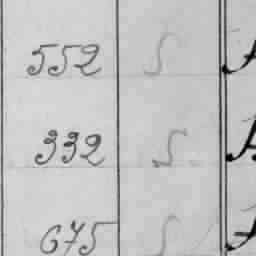 552 S
332 S
675 S